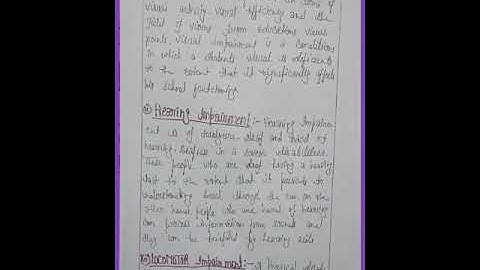 visual activity visual efficiency and the
field of vision from educations views
points visual impairment is a condition
in which a students visual is deficients
to the extent that it significantly affects
his school functioning.
Hearing Impairment :- Hearing Impairm
ent is of deaf and hard of
hearing. in a severe
These people who are deaf having a hearing
lost to the extent that it prevents
understanding through the ear on the
other hand people who are hard of hearing
can process information from sound and
they can be benefited by hearing aids
LOCOMOTOR Impairment :- A